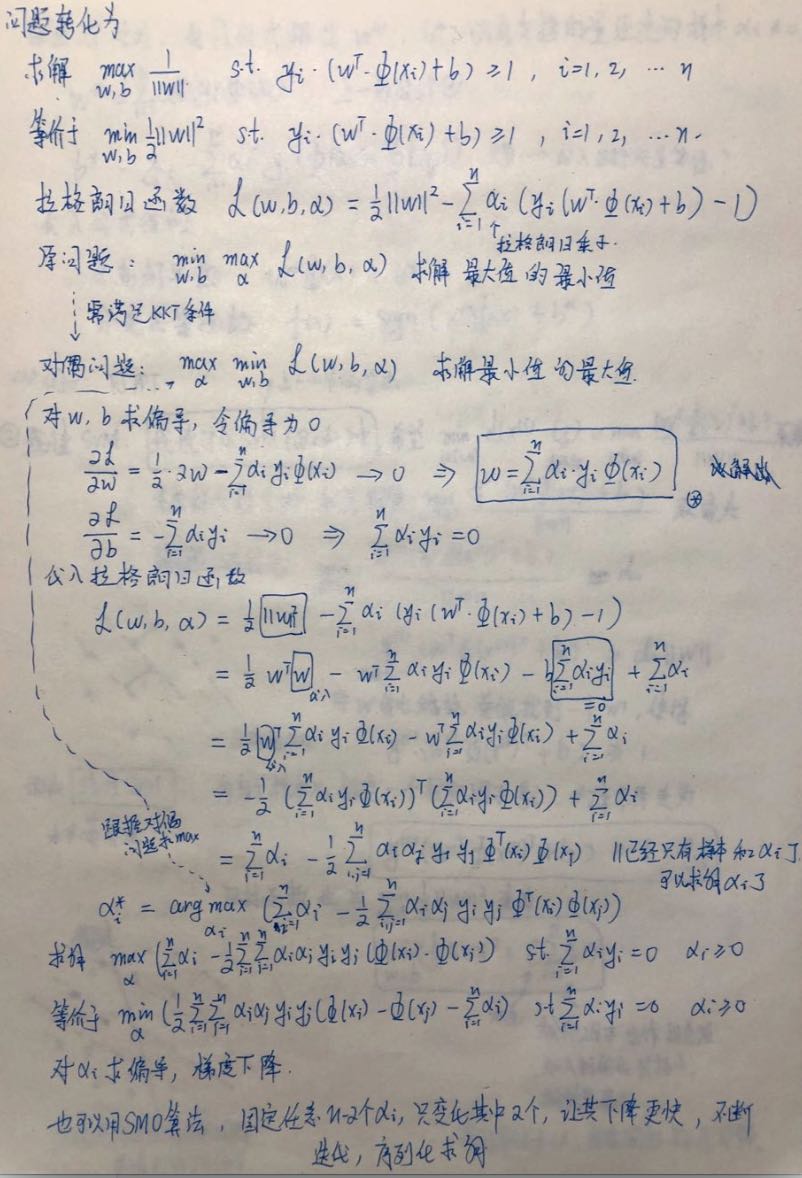 问题转化为
求解 max_{w,b} 1/||w|| s.t. yi·(w^T·Φ(xi)+b) ≥1 , i=1, 2, … n
等价于 min_{w,b} 1/2||w||² s.t. yi·(w^T·Φ(xi)+b) ≥1 , i=1, 2, … n.
拉格朗日函数 L(w,b,α) = 1/2||w||² - Σ_{i=1}^{n} αi (yi(w^T·Φ(xi)+b) - 1)
↑拉格朗日乘子.
原问题: min_{w,b} max_{α} L(w,b,α) 求解 最大值的最小值
↓需满足KKT条件
对偶问题: max_{α} min_{w,b} L(w,b,α) 求解最小值的最大值.
对w,b求偏导, 令偏导为0
∂L/∂w = 1/2·2w - Σ_{i=1}^{n} αi yi Φ(xi) → 0 ⇒ w = Σ_{i=1}^{n} αi·yi Φ(xi) ⊛
∂L/∂b = -Σ_{i=1}^{n} αi yi → 0 ⇒ Σ_{i=1}^{n} αi yi = 0
代入拉格朗日函数
L(w,b,α) = 1/2 ||w||² - Σ_{i=1}^{n} αi (yi (w^T·Φ(xi)+b) - 1)
= 1/2 w^T w - w^T Σ_{i=1}^{n} αi yi Φ(xi) - b Σ_{i=1}^{n} αi yi + Σ_{i=1}^{n} αi
代入 =0
= 1/2 w^T Σ_{i=1}^{n} αi yi Φ(xi) - w^T Σ_{i=1}^{n} αi yi Φ(xi) + Σ_{i=1}^{n} αi
代入
= -1/2 (Σ_{i=1}^{n} αi yi Φ(xi))^T (Σ_{i=1}^{n} αi yi Φ(xi)) + Σ_{i=1}^{n} αi
根据对偶
问题求max
= Σ_{i=1}^{n} αi - 1/2 Σ_{i,j=1}^{n} αi αj yi yj Φ^T(xi) Φ(xj) //已经只有样本和αi了
可以求解αi了
αi* = arg max_{αi} (Σ_{i=1}^{n} αi - 1/2 Σ_{i,j=1}^{n} αi αj yi yj Φ^T(xi) Φ(xj))
求解 max_{α} (Σ_{i=1}^{n} αi - 1/2 Σ_{i=1}^{n} Σ_{j=1}^{n} αi αj yi yj (Φ(xi)·Φ(xj)) s.t. Σ_{i=1}^{n} αi yi = 0 αi ≥ 0
等价于 min_{α} (1/2 Σ_{i=1}^{n} Σ_{j=1}^{n} αi αj yi yj (Φ(xi) - Φ(xj) - Σ_{i=1}^{n} αi) s.t Σ_{i=1}^{n} αi yi = 0 αi ≥ 0
对αi求偏导, 梯度下降.
也可以用SMO算法, 固定任意n-2个αi, 只变化其中2个, 让其下降更快, 不断
迭代, 序列化求解